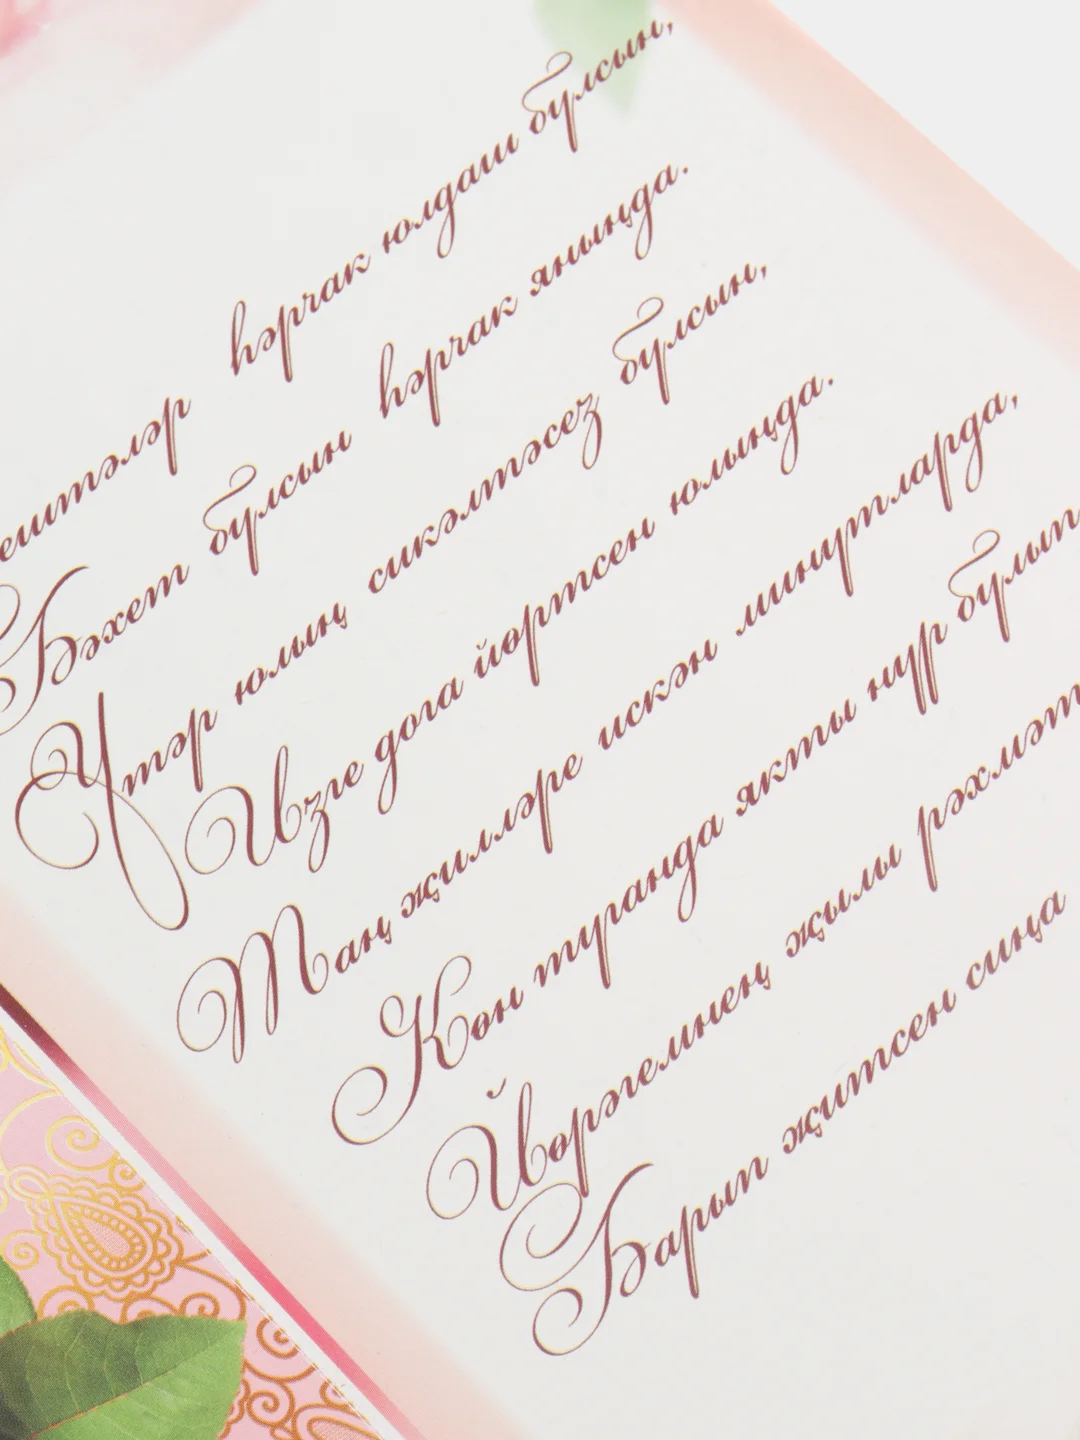 ештәләр һәрчак юлдаш булсын,
Бәхет булсын һәрчак яныңда.
Үтәр юлың сикәлтәсез булсын,
Изге дога йөртсен юлыңда.
Таң җилләре искән минутларда,
Көн туганда якты нур булып
Йөрәгемнең җылы рәхмәт
Барып җитсен сиңа